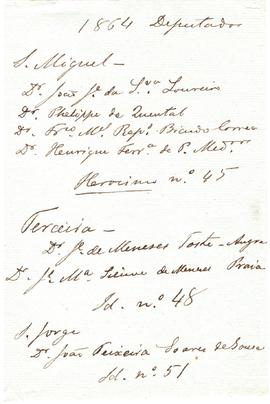 1864 Deputados
S. Miguel -
Dr. João Jé. da S.va Loureiro
Dr. Philippe de Quental
Dr. Fr.co M.el Rap.l Bicudo Correa
Dr. Henrique Ferr.a de P. Med.ros
Heroismo nº. 45
Terceira -
Dr. Jé. de Meneses Toste - Angra
Dr. Jé. Ma. Sieuve de Meneses Praia
Id. nº. 48
S. Jorge
Dr. João Teixeira Soares de Sousa
Id. nº. 51